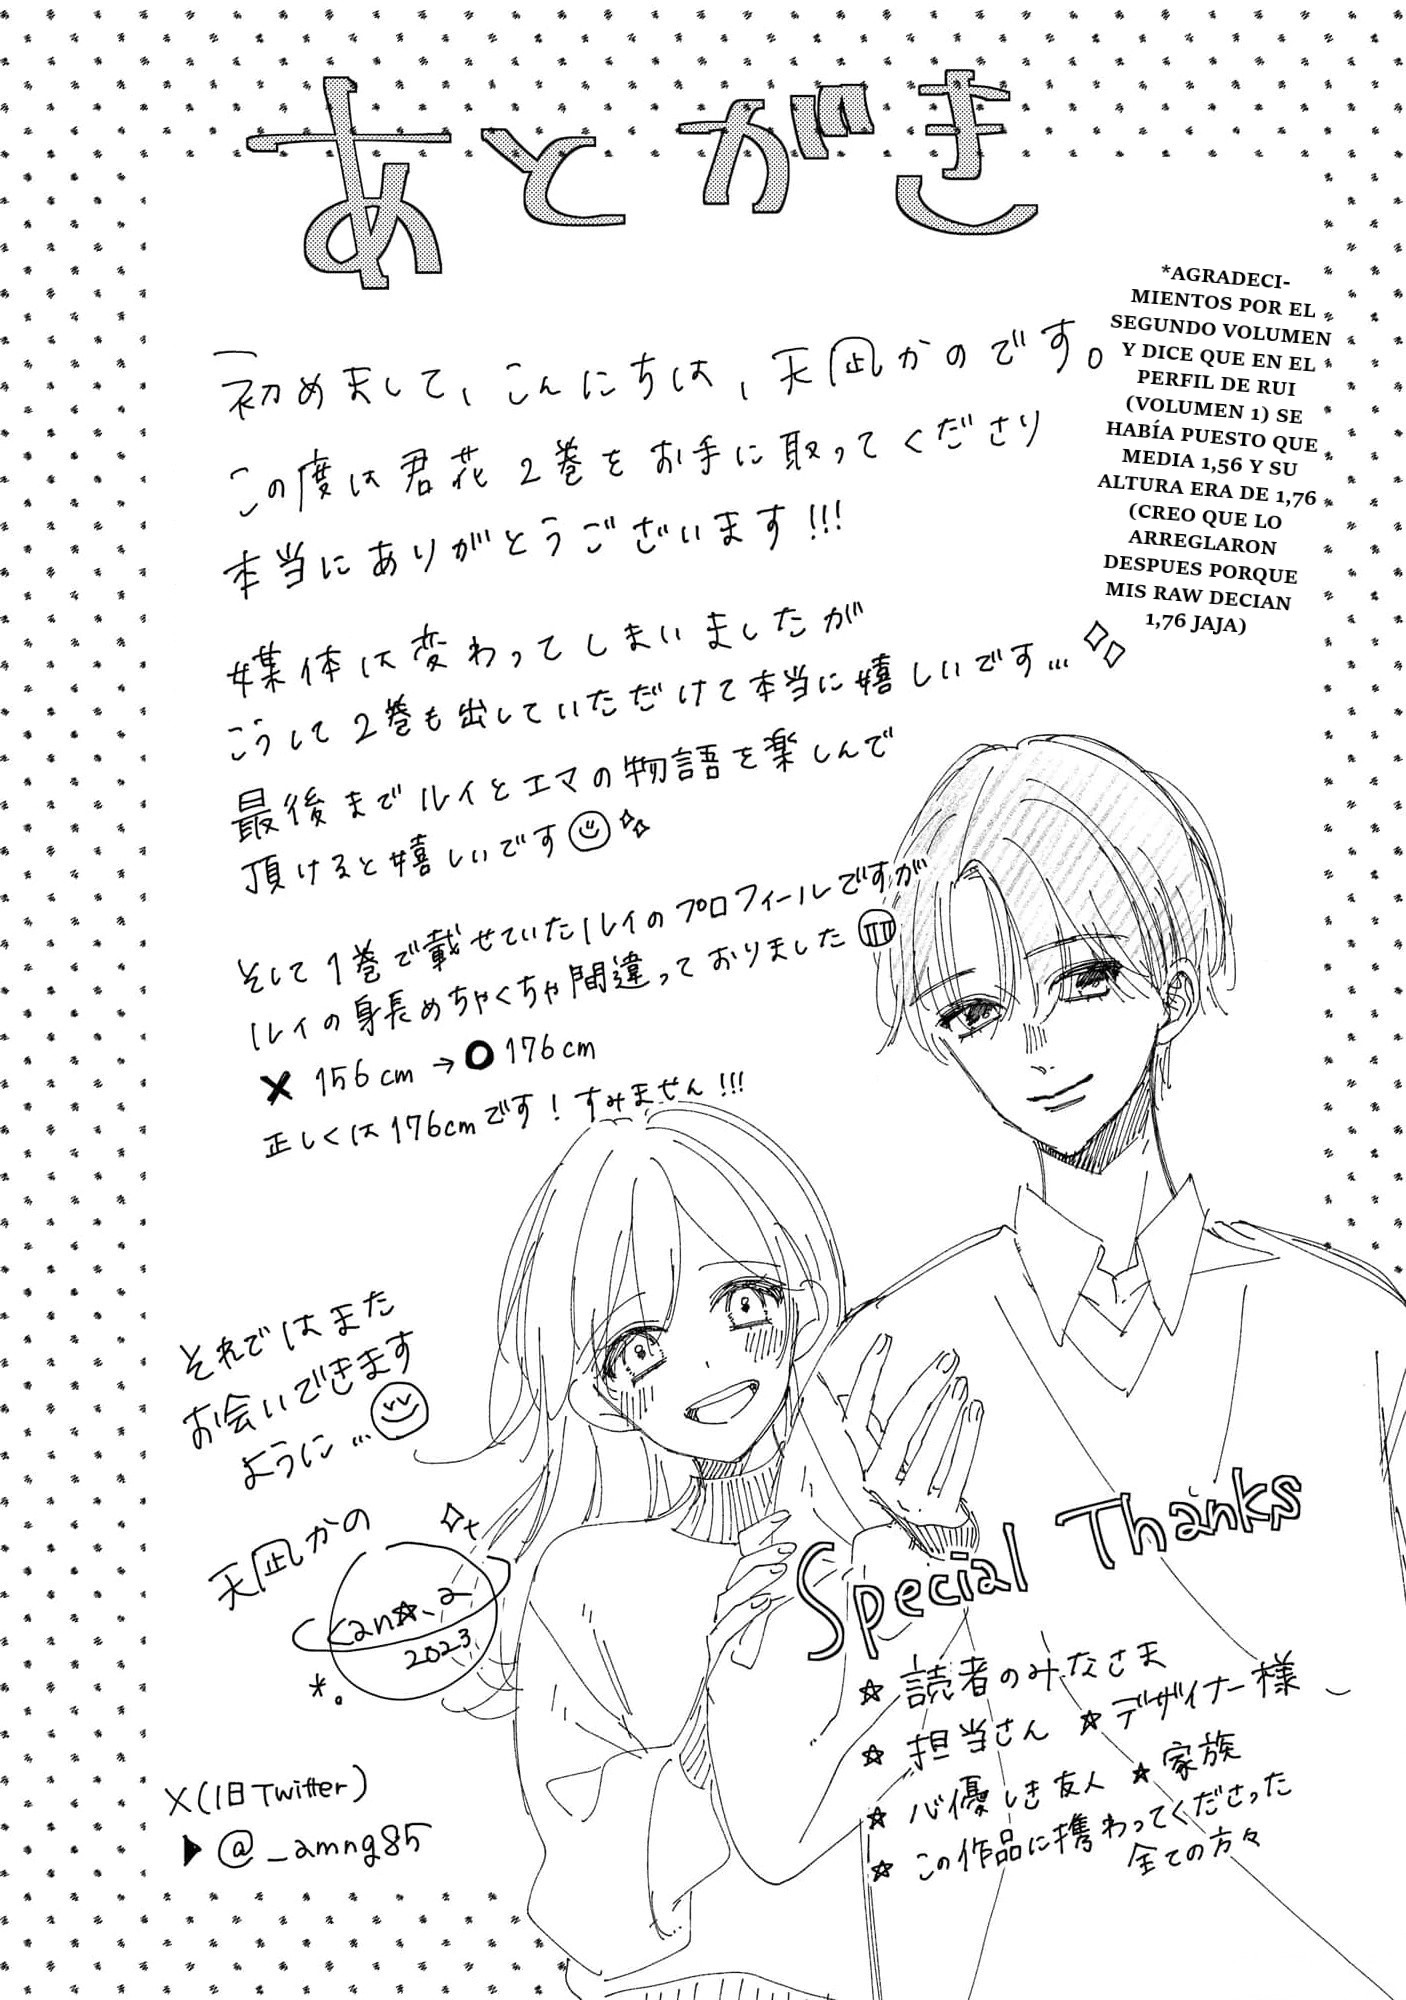 あとがき
*AGRADECI-
MIENTOS POR EL
SEGUNDO VOLUMEN
Y DICE QUE EN EL
PERFIL DE RUI
(VOLUMEN 1) SE
HABÍA PUESTO QUE
MEDIA 1,56 Y SU
ALTURA ERA DE 1,76
(CREO QUE LO
ARREGLARON
DESPUES PORQUE
MIS RAW DECIAN
1,76 JAJA)
初めまして、こんにちは、天凪かのです。
この度は君花2巻をお手に取ってくださり
本当にありがとうございます!!!
媒体は変わってしまいましたが
こうして2巻も出していただけて本当に嬉しいです…
最後までルイとエマの物語を楽しんで
頂けると嬉しいです
そして1巻で載せていたルイのプロフィールですが
ルイの身長めちゃくちゃ間違っておりました
✕ 156cm→〇176cm
正しくは176cmです!すみません!!!
それではまた
お会いできます
ように…
天凪かの
2023
X(旧Twitter)
▶@_amng85
Special Thanks
☆読者のみなさま
☆担当さん ☆デザイナー様
☆心優しき友人 ☆家族
☆この作品に携わってくださった
全ての方々